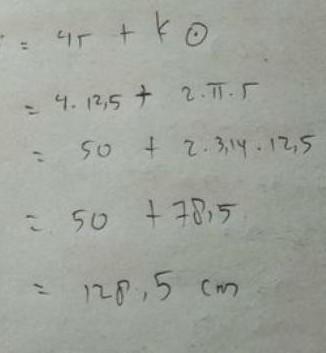 = 4r + k ⊙
= 4. 12,5 + 2.π.r
= 50 + 2.3,14.12,5
= 50 + 78,5
= 128,5 cm